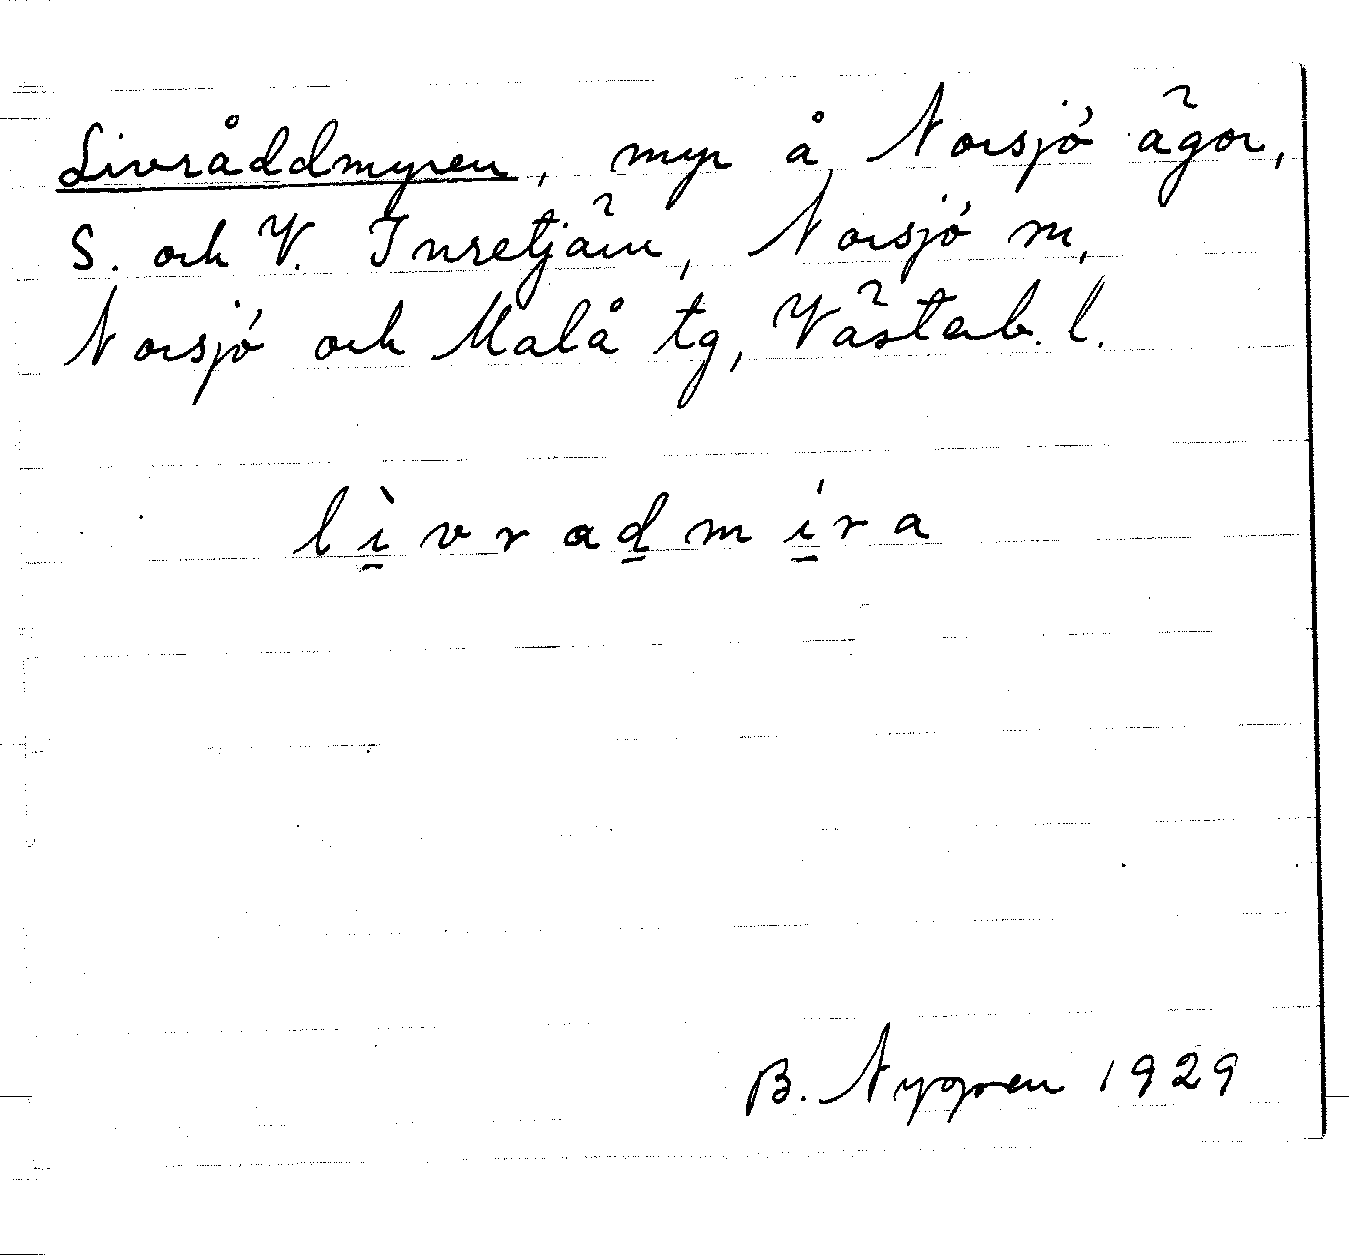 Livråddmyren, myr å Norsjö ägor,
S. och V. Inretjärn, Norsjö sn,
Norsjö och Malå tg, Västerb. l.
lìvradmíra
B. Nygren 1929